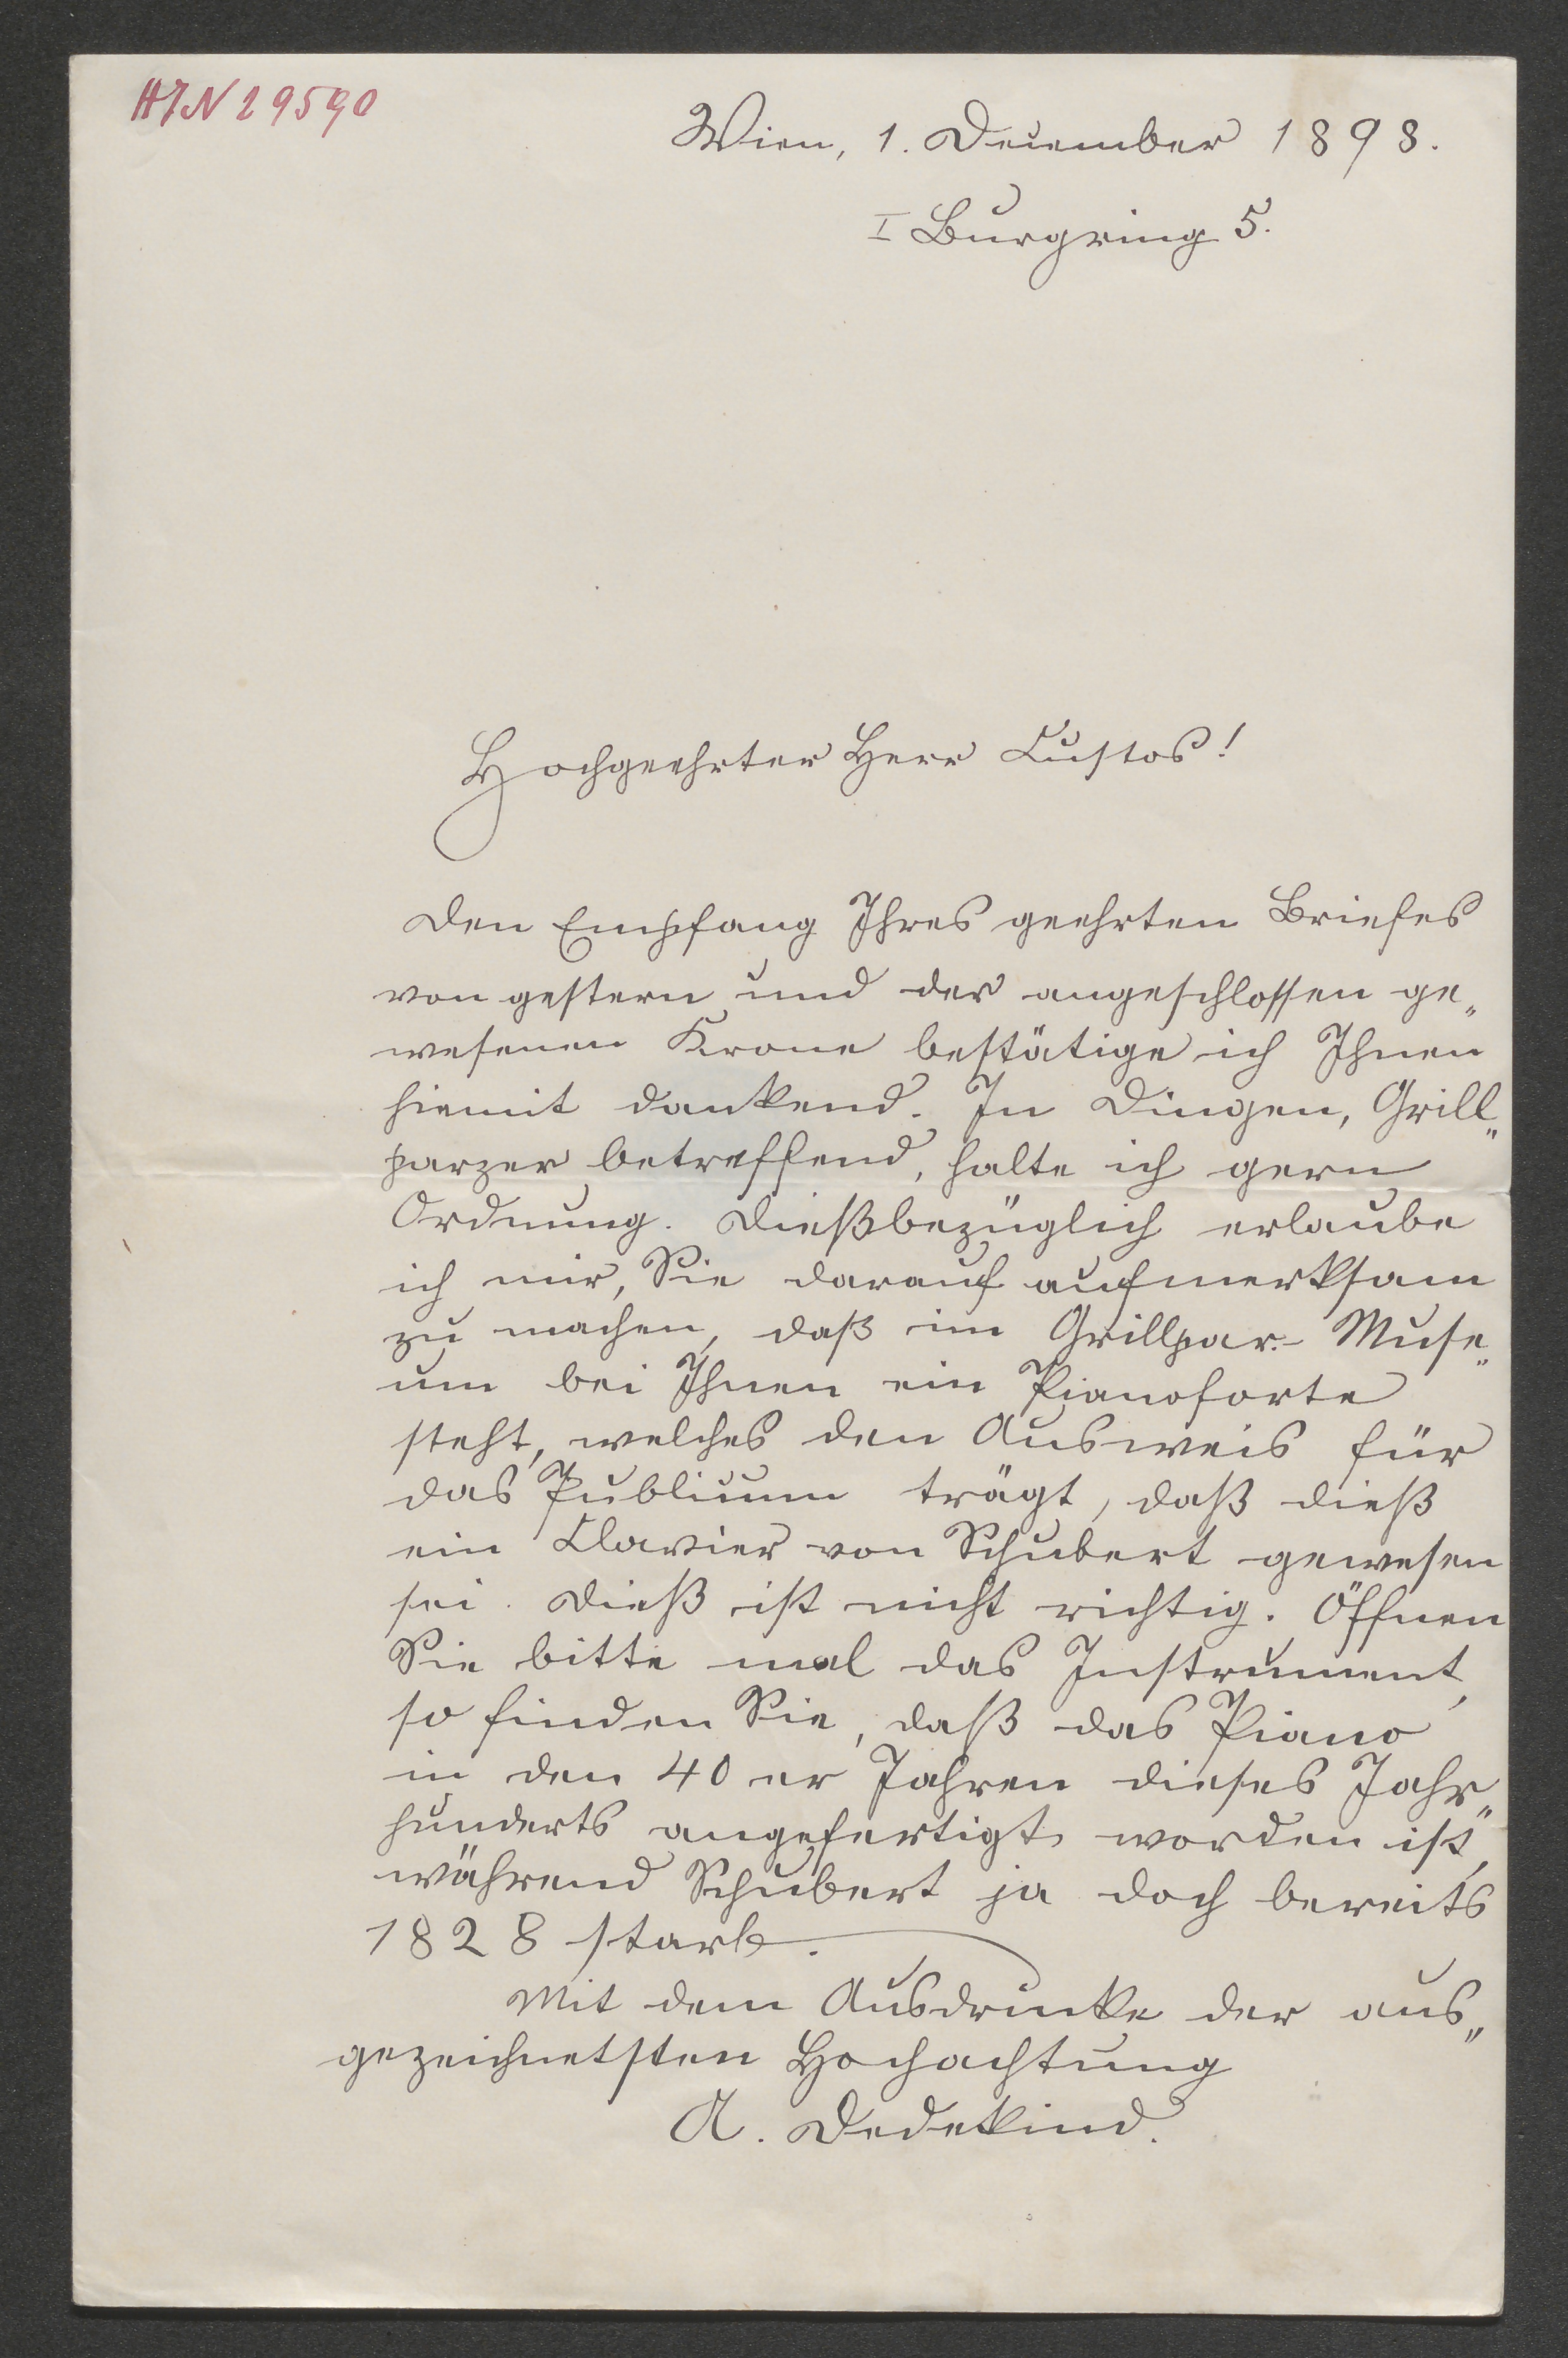 HIN 29590
Wien, 1. December 1898.
I Burgring 5.
Hochgeehrter Herr Custos!
Den Empfang Ihres geehrten Briefes
von gestern und der angeschlossen ge„
wesenen Krone bestätige ich Ihnen
hiemit dankend. In Dingen, Grill„
parzer betreffend, halte ich gern
Ordnung. Dießbezüglich erlaube
ich mir, Sie darauf aufmerksam
zu machen, daß im Grillpar.- Muse„
um bei Ihnen ein Pianoforte
steht, welches den Ausweis für
das Publicum trägt, daß dieß
ein Clavier von Schubert gewesen
sei. Dieß ist nicht richtig. Öffnen
Sie bitte mal das Instrument,
so finden Sie, daß das Piano
in den 40er Jahren dieses Jahr„
hunderts angefertigt worden ist,
während Schubert ja doch bereits
1828 starb.
Mit dem Ausdrucke der aus„
gezeichnetsten Hochachtung
A. Dedekind.